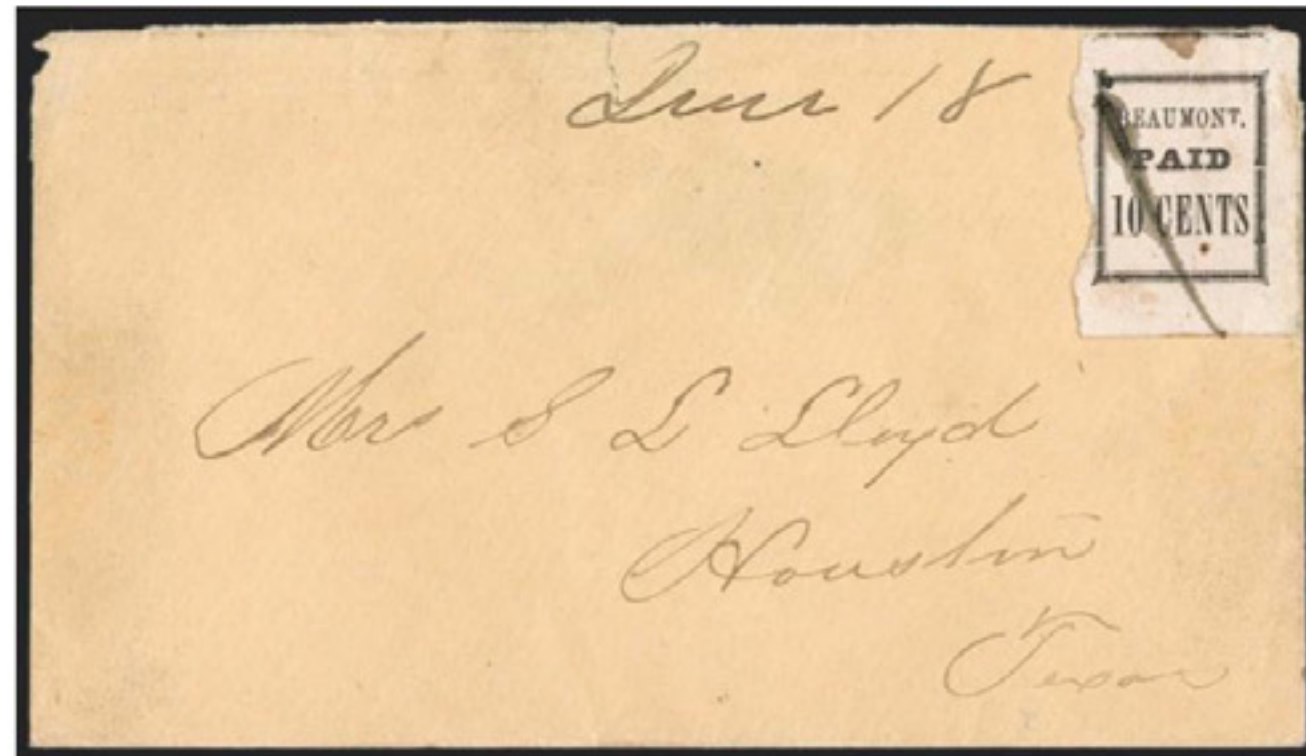 June 18
BEAUMONT.
PAID
10 CENTS
Mrs S L Lloyd
Houston
Texas